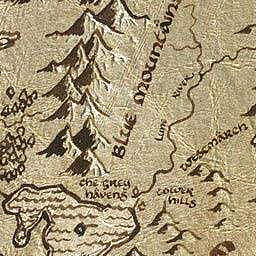 BLUE MOUNTAIN
LUNE RIVER
WESTMARCH
THE GREY
HAVENS
TOWER
HILLS